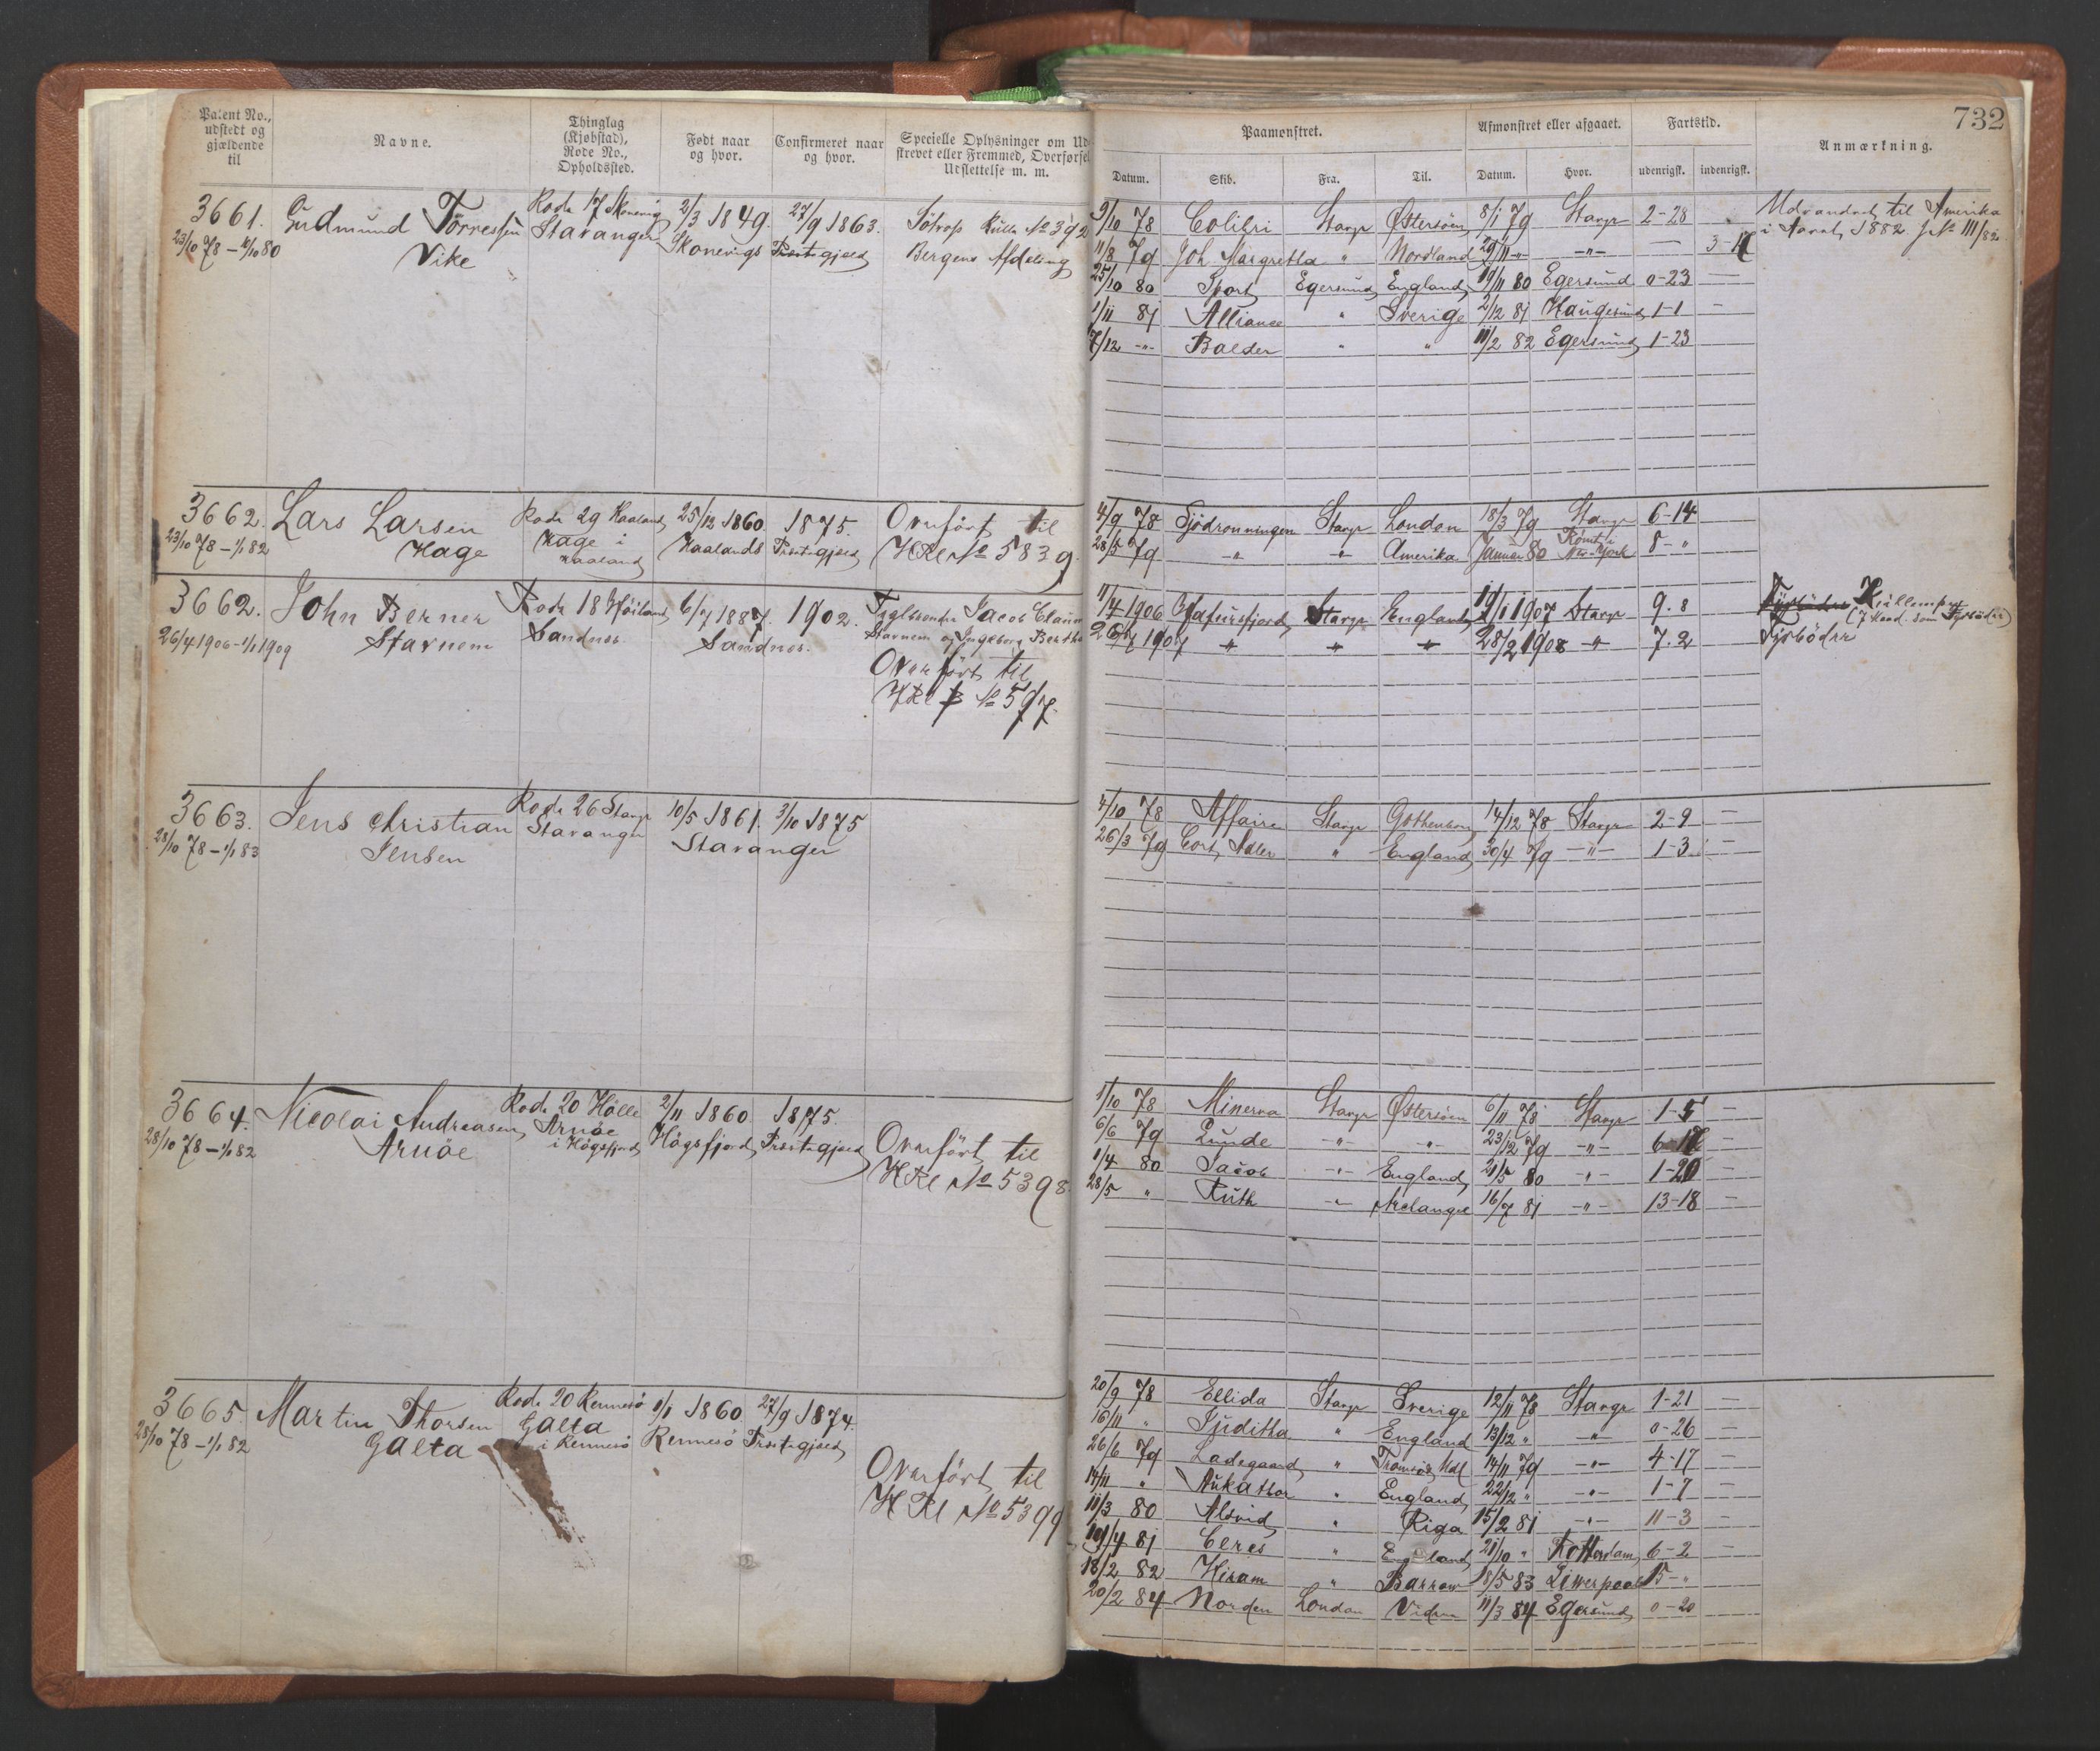 732
Patent No., udstedt og gjældende til
Navne.
Thinglag (Kjøbstad), Rode No., Opholdssted.
Født naar og hvor.
Confirmeret naar og hvor.
Specielle Oplysninger om Ud-
strevet eller Fremmed, Overførsel
Udslettelse m. m.
Paamønstret.
Afmønstret eller afgaaet.
Fartstid.
Anmærkning.
Datum. Skib. Fra. Til. Datum. Hvor. udenrigsk. indenrigsk.
3661. Gudmund Torressen Rode 17 Skonevig 2/3 1849. 27/9 1863. Rulle No 392
23/10 78 - 10/10 80 Vike Stavanger Skonevigs Præstegjæld Bergens Afdeling
9/10 78 Colibri Stavgr Østersöen 8/1 79 Stavgr 2-28
Udvandret til Amerika
i Marts 1882
11/8 79 Joh. Margretha " Nordland 29/11 -"- -"- —
25/10 80 Sport Egersund England 19/11 80 Egersund 0-23 —
1/11 81 Alliance " Sverige 2/12 81 Haugesund 1-1 —
17/12 -"- Balder " " 11/2 82 Egersund 1-23
3662. Lars Larsen Rode 29 Haaland 25/12 1860 1875. Overført til
23/10 78 - 1/1 82 Hage Hage i Haaland Haalands Præstegjæld HRl No 5839.
4/9 78 Sjødronningen Stavgr London 18/3 79 Stavgr 6-14 —
28/5 79 -"- -"- Amerika Januar 80 Rømt i New-York 8-"
3662. John Berner Rode 18 Høiland 6/7 1887. 1902. Jacob
26/4 1906 - 1/1 1909 Stavnem Sandnes. Sandnes. Stavnem og Ingeborg Berthe
Overført til
HRl B No 597.
11/4 1906 Hafursfjord Stavgr England 19/1 1907 Stavgr 9.8 Fyrbøder Kullemper
(7 Maad. som Fyrbøder)
1907 " " " 28/2 1908 -"- 7.2 Fyrböder
3663. Jens Christian Rode 26 Stavgr 10/5 1861. 3/10 1875
28/10 78 - 1/1 83 Jensen Stavanger Stavanger
4/10 78 Affairen Stavgr Gothenborg 14/12 78 Stavgr 2-9 —
26/3 79 Cort Adler " England 30/4 79 -"- 1-3 —
3664. Nicolai Andreasen Rode 20 Hölle 2/11 1860 1875.
28/10 78 - 1/1 82 Arnöe Arnöe i Högsfjord Högsfjord Præstegjæld Overført til
HRl No 5398
1/10 78 Minerva Stavgr Østersöen 6/11 78 Stavgr 1-5 —
6/6 79 Lunde -"- -"- 23/12 79 -"- —
1/4 80 Jacob -"- England 21/5 80 -"- 1-20 —
28/5 " Ruth -"- Archangel 16/7 81 -"- 13-18 —
3665. Martin Thorsen Rode 20 Rennesö 1/1 1860 27/9 1874.
28/10 78 - 1/1 82 Galta Galta i Rennesö Rennesö Præstegjæld
Overført til
HRl No 5399
20/9 78 Ellida Stavgr Sverige 12/11 78 Stavgr 1-21 —
16/11 " Juditha " England 13/12 " -"- 0-26 —
26/6 79 Ladegaard " 14/11 79 -"- 4-17 —
14/11 " " England 22/12 " -"- 1-7 —
11/3 80 Alsvid " Riga 15/2 81 -"- 11-3 —
19/4 81 Ceres " England 21/10 " Rotterdam 6-2 —
18/2 82 Hiram " Barrow 18/5 83 Liverpool 15-"
20/2 84 Norden London 11/3 84 Egersund 0-20